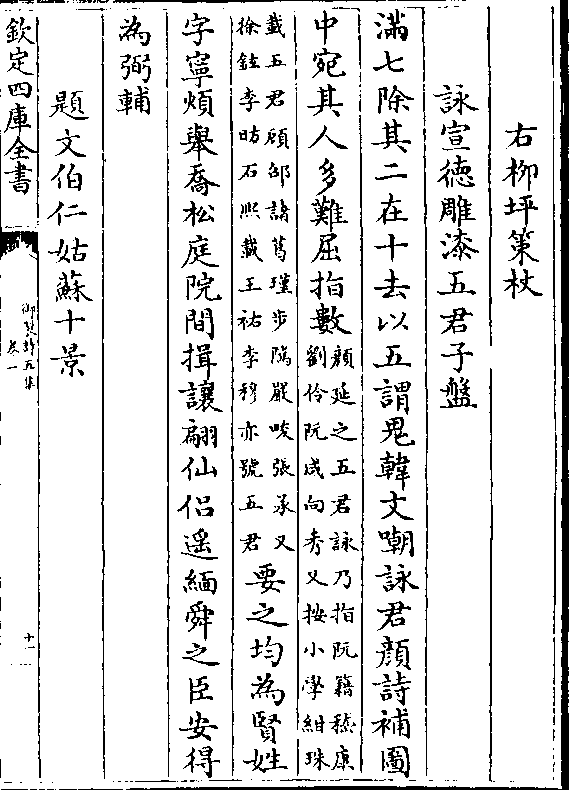 右柳坪策杖
詠宣徳雕漆五君子盤
滿七除其二在十去以五謂鬼韓文嘲詠君顔詩補圖
中宛其人多難屈指數顔延之五君詠乃指阮籍嵇康
劉伶阮咸向秀又按小學紺珠
載五君顧邵諸葛瑾步隲嚴畯張承又
徐鉉李昉石熙載王祐李穆亦號五君要之均為賢姓
字寧煩舉喬松庭院間揖讓翩仙侣遥緬舜之臣安得
為弼輔
題文伯仁姑蘇十景
欽定四庫全書
御製詩五集
卷一
十一